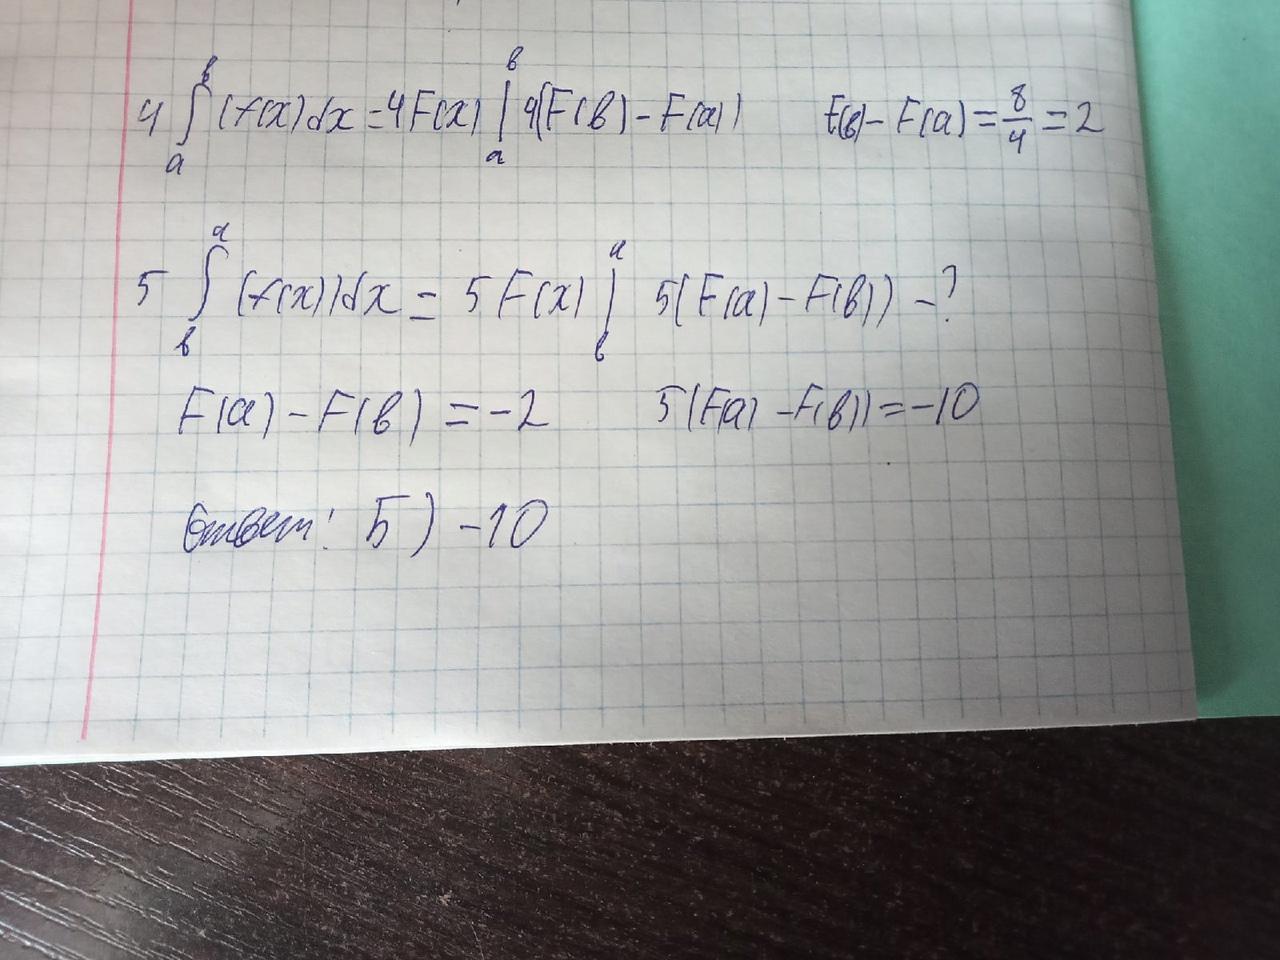 4 ∫ₐᵇ (f(x)dx = 4F(x) |ₐᵇ 4(F(b) - F(a)) F(b) - F(a) = 8/4 = 2
5 ∫ᵇᵃ (f(x))dx = 5F(x) |ᵇᵃ 5(F(a) - F(b)) - ?
F(a) - F(b) = -2 5(F(a) - F(b)) = -10
Ответ: Б) -10